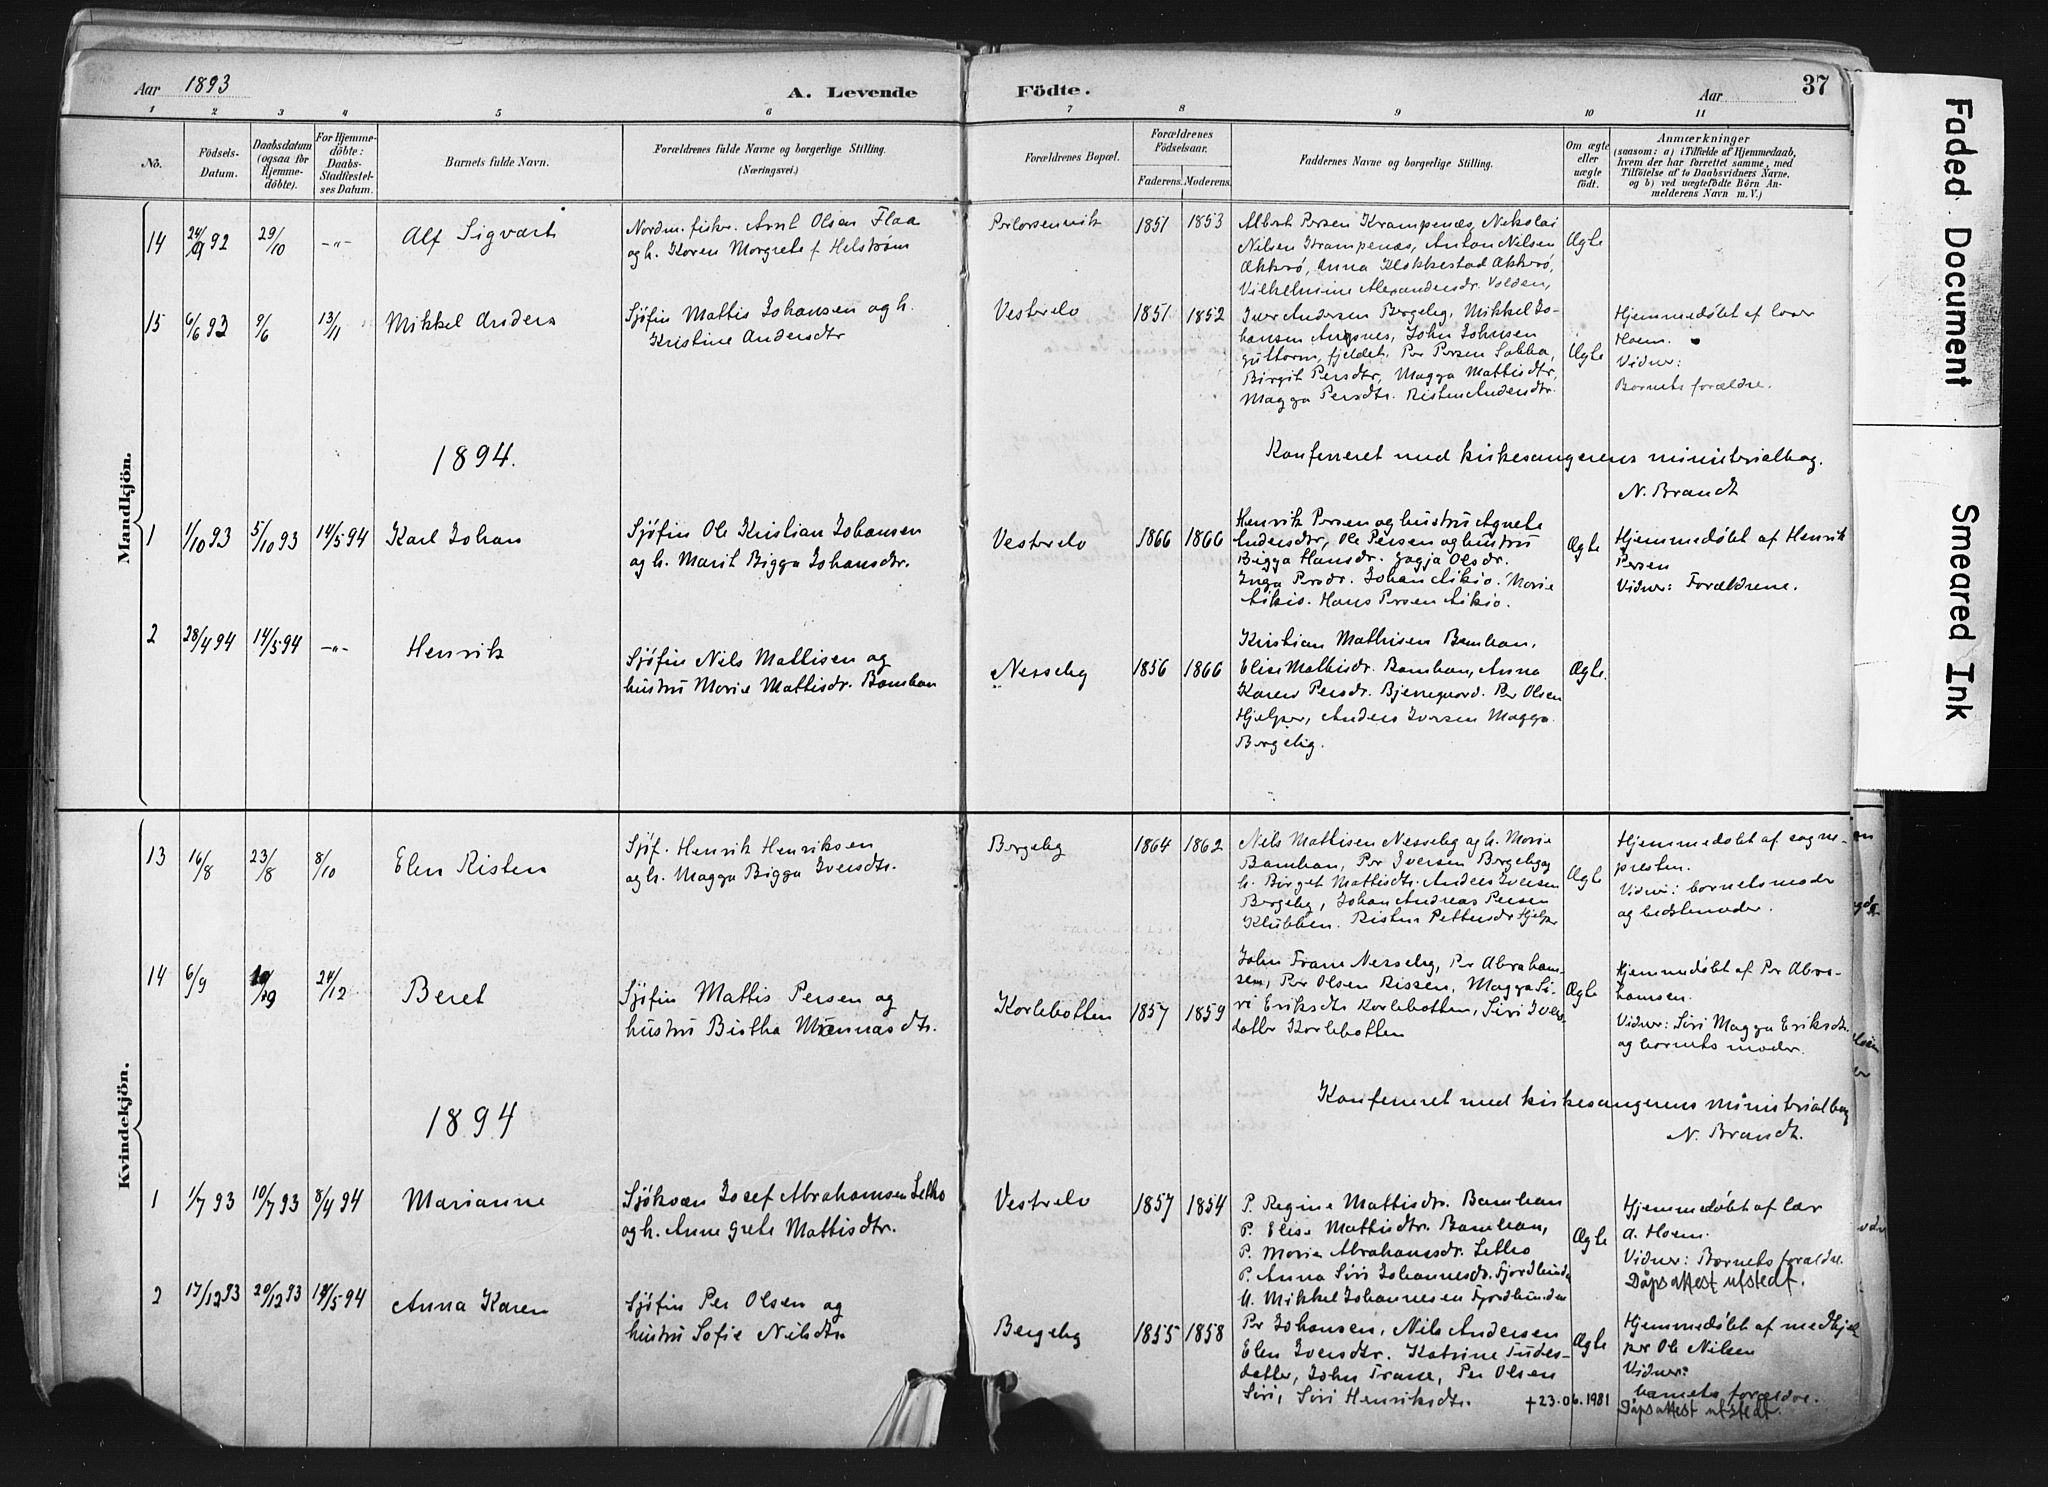 Aar 1893
A. Levende
Födte.
Aar
37
1 2 3 4 5 6 7 8 9 10 11
No.
Födsels-
Datum.
Daabsdatum
(ogsaa for
Hjemme-
döbte).
For Hjemme-
döbte:
Daabs-
Stadfæstel-
ses Datum.
Barnets fulde Navn.
Forældrenes fulde Navne og borgerlige Stilling.
(Næringsvei.)
Forældrenes Bopæl.
Forældrenes
Födselsaar.
Faderens. Moderens.
Faddernes Navne og borgerlige Stilling.
Om ægte
eller
uægte
födt.
Anmærkninger
(saasom: a) i Tilfælde af Hjemmedaab,
hvem der har forrettet samme, med
Tilföielse af to Daabsvidners Navne,
og b) ved uægtefödte Börn An-
melderens Navn m. V.)
Mandkjön.
14 24/9 92 29/10 -"- Alf Sigvart
Nordm. fisker. Arnt Olsen Flaa
og h. Karen Margrete f Helstrøm
1851 1853
Albert Persen Krampenæs, Nekolai
Nilsen Krampenæs, Anton Nilsen
Akkerø, Anna Klokkestad Akkerø,
Vilhelmine Alexandersdr. Volden,
Ægte
15 6/6 93 9/6 13/11 Mikkel Anders
Sjøfin Mattis Johansen og h.
Kristine Andersdtr
Vestrelv 1851 1852
Iver Andersen Bergeby, Mikkel Jo-
hansen Annsnes, John Johnsen
Guttorm, fjeldet. Per Persen Sabba,
Birgit Persdtr, Magga Mattisdtr,
Magga Persdtr. Risten Andersdtr.
Ægte
Hjemmedøbt af lærer
Hoem.
Vidner:
Barnets forældre.
1894.
Konfereret med kirkesangerens ministerialbog.
N. Brandt
1 1/10 93 5/10 93 14/5 94 Karl Johan
Sjøfin Ole Kristian Johansen
og h. Marit Bigga Johansdtr.
Vestrelv 1866 1866
Henrik Persen og hustru Agnete
Andersdtr, Ole Persen og hustru
Bigga Hansdr. Gagja Olsdr.
Inga Persdr. Johan Aikio. Marie
Aikio. Hans Persen Aikio.
Ægte
Hjemmedøbt af Henrik
Persen
Vidner: Forældrene.
2 28/4 94 14/5 94 -"- Henrik
Sjøfin Nils Mattisen og
hustru Marie Mattisdr. Bamban
Nesseby 1856 1866
Kristian Mathisen Bamban,
Elise Mattisdr. Bamban, Anna
Karen Persdr. Bjerregaard. Per Olsen
Hjelper, Anders Iversen Magga
Bergeby.
Ægte.
Kvindekjön.
13 16/8 23/8 8/10 Elen Risten
Sjøf. Henrik Henriksen
og h. Magga Bigga Iversdtr.
Bergeby 1864 1862
Nils Mattisen Nesseby og h. Marie
Bamban, Per Iversen Bergeby og
h. Birget Mattisdtr. Anders Iversen
Bergeby, Johan Andreas Persen
Klubben. Risten Pettersdr Hjelper
Ægte
Hjemmedøbt af sogne-
presten.
Vidner: barnets moder
og bedstemoder.
14 6/9 24/12 Beret
Sjøfin Mattis Persen og
hustru Biitha Monnasdtr.
Karlebotten 1857 1859
John Trane Nesseby, Per Abraham-
sen, Per Olsen Rissen, Magga Si-
ri Eriksdtr Karlebotten, Siri Ivers-
datter Karlebotten
Ægte
Hjemmedøbt af Per Abra-
hamsen.
Vidner: Siri Magga Eriksdtr.
og barnets moder.
1894
Konfereret med kirkesangerens Ministerialbog
N. Brandt.
1 1/7 93 10/7 93 8/4 94 Marianne
Sjøkvæn Josef Abrahamsen Letto
og h. Anne Grete Mattisdtr.
Vestrelv 1857 1854
P. Regine Mattisdtr. Bamban
P. Elise Mattisdtr. Bamban,
P. Marie Abrahamsdr. Letto
P. Anna Siri Johannesdr. Fjordbunden
U. Mikkel Johannesen Fjordbunden
Ægte
Hjemmedøbt af lær
A. Hoem.
Vidner: Barnets forældre.
Dåpsattest utstedt.
2 17/12 93 20/12 93 14/5 94 Anna Karen
Sjøfin Per Olsen og
hustru Sofie Nilsdtr
Bergeby 1855 1858
Per Johansen, Nils Andersen
Elen Iversdtr. Katrine Tudes-
datter, John Trane, Per Olsen
Siri, Siri Henriksdtr.
† 23.06.1981
Ægte
Hjemmedøbt af medhjel
per Ole Nilsen
Vidner:
barnets forældre.
Dåpsattest utstedt.
Faded Document
Smeared Ink